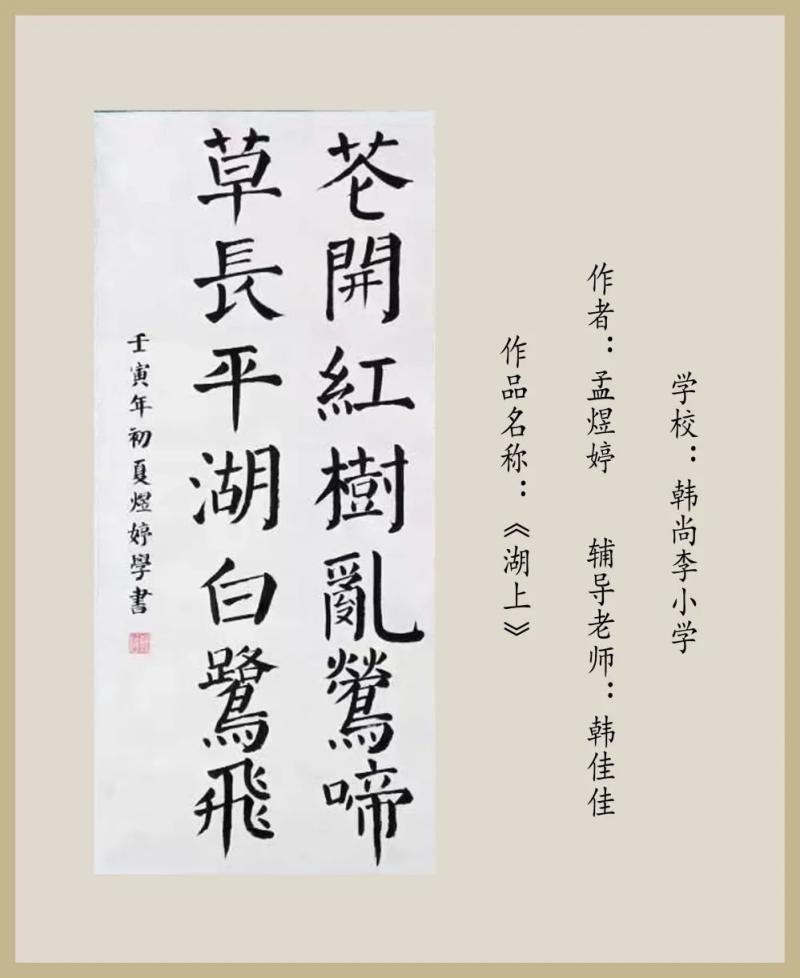 学校：韩尚李小学
作者：孟煜婷 辅导老师：韩佳佳
作品名称：《湖上》
花開紅樹亂鶯啼
草長平湖白鷺飛
壬寅年初夏煜婷學書